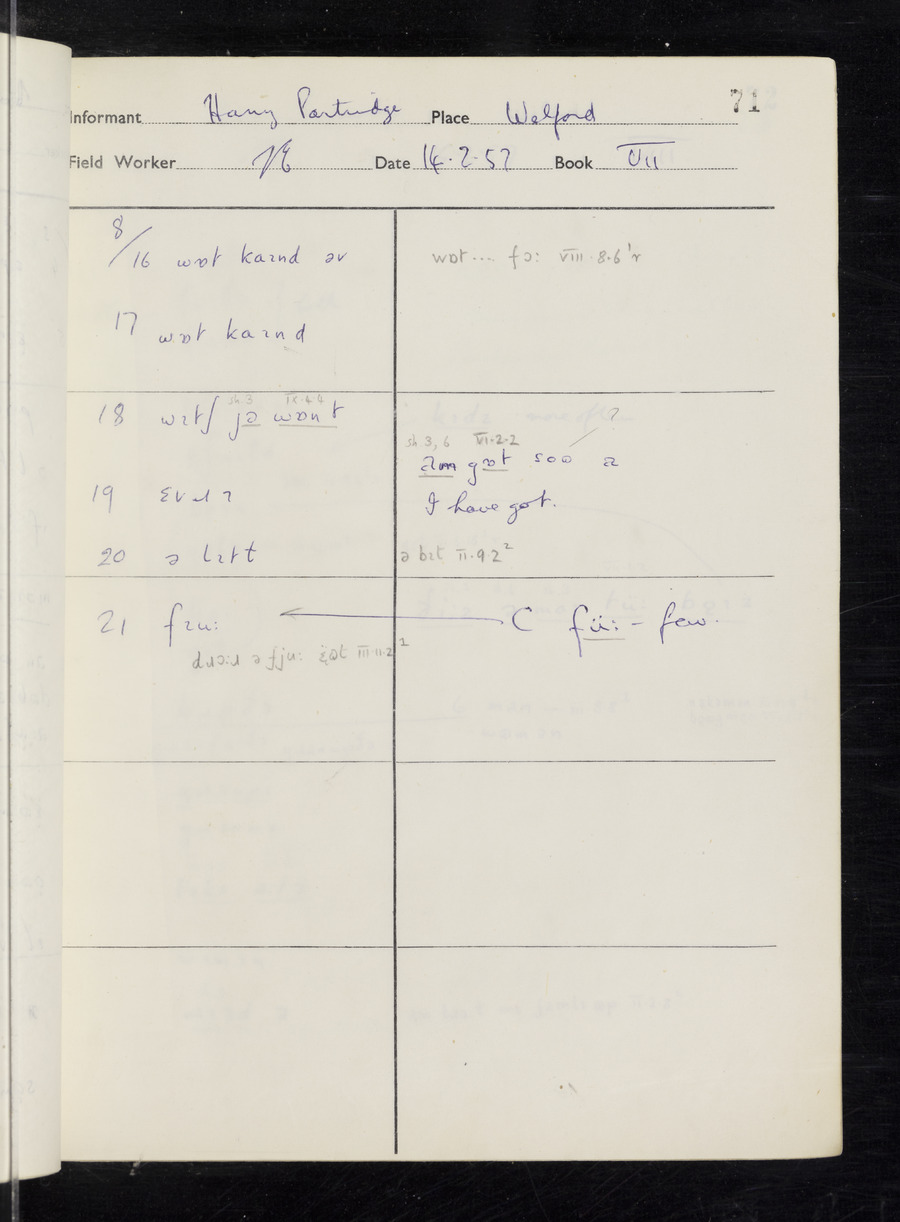 71
Informant Harry Partridge Place Welford
Field Worker Date 14.2.57 Book VII
8/16 wɒt kaɪnd əv
wɒt... fɔ: VIII.8.6'r
17 wɒt kaɪnd
sh 3 IX.4.4
18 wɪtʃ jə wɒnt
?
sh 3, 6 VI.2.2
am gɒt
19 ɛvɹɪ
I have got.
20 ə lɪtt
ə bɪt II.9.2²
21 fɪu:
C fü: - few.
ə fju: III.11.2¹